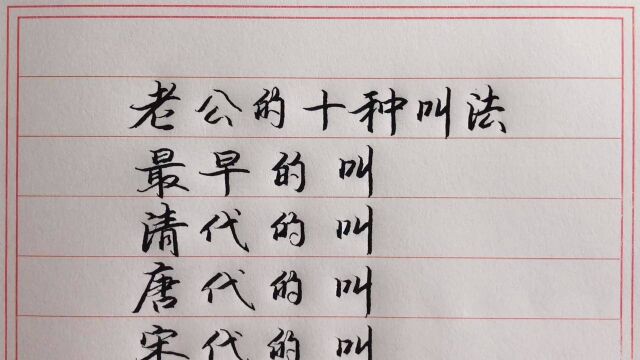 老公的十种叫法
最早的叫
清代的叫
唐代的叫
宋代的叫